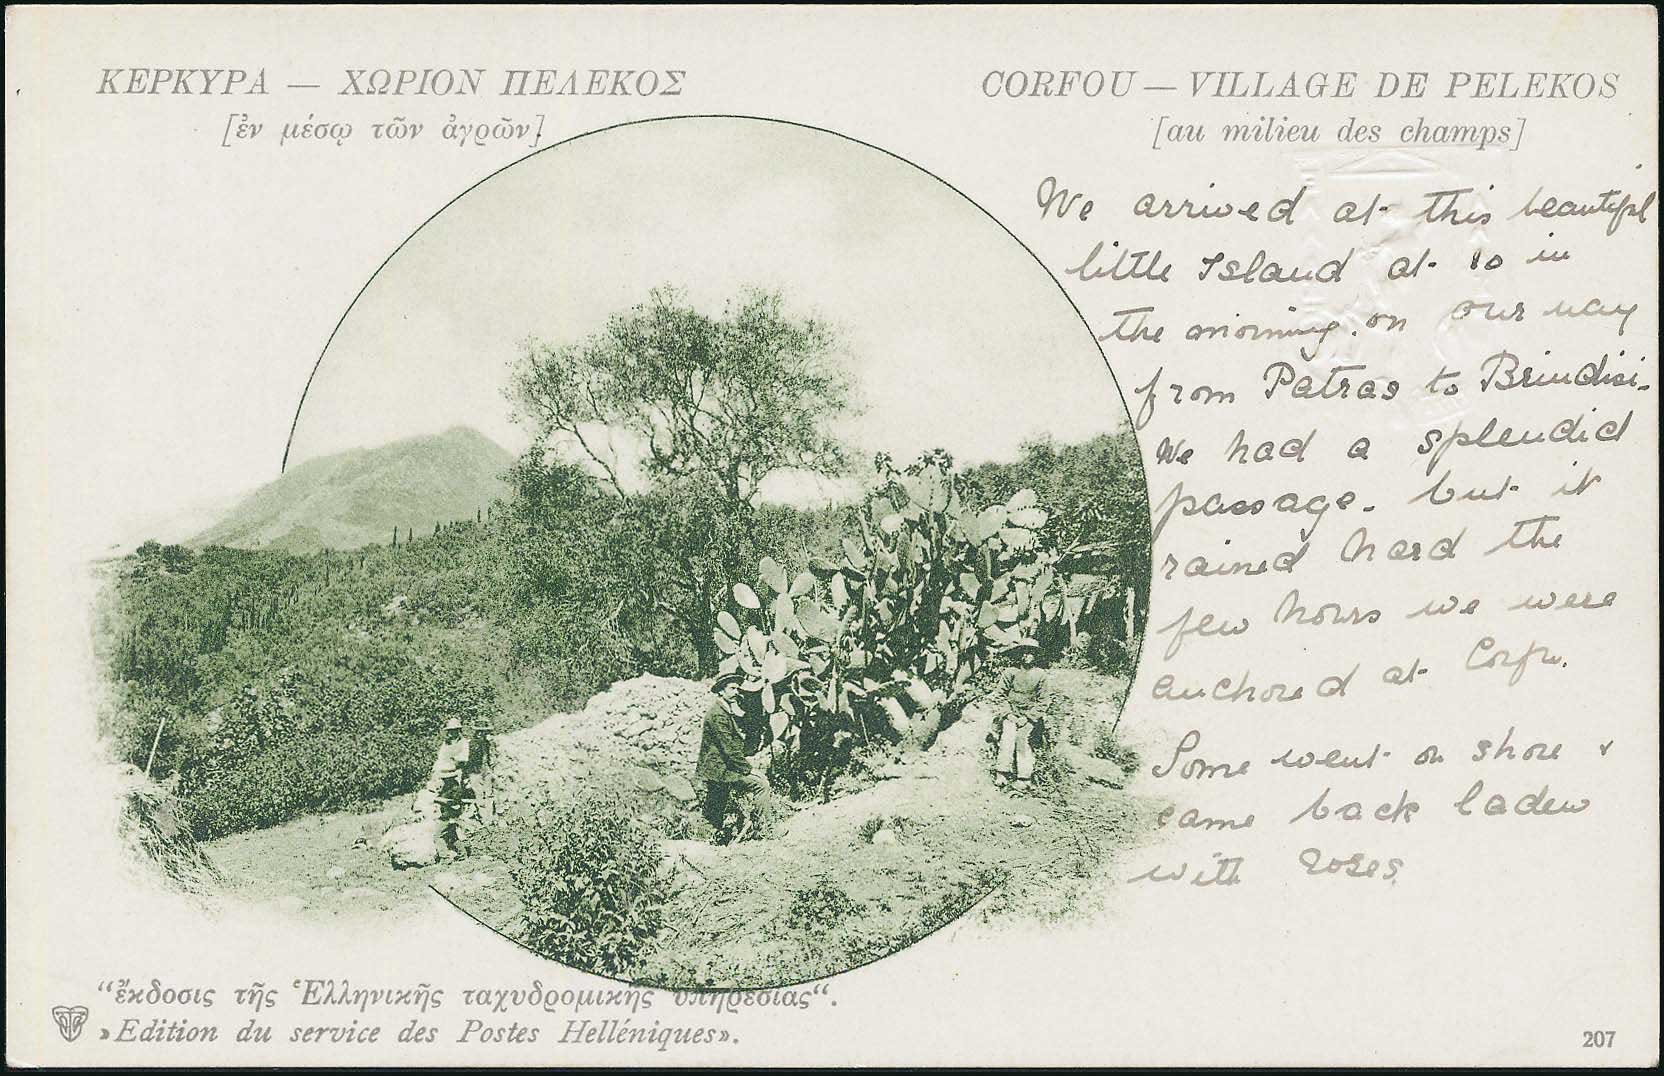 ΚΕΡΚΥΡΑ — ΧΩΡΙΟΝ ΠΕΛΕΚΟΣ
[ἐν μέσῳ τῶν ἀγρῶν]
CORFOU — VILLAGE DE PELEKOS
[au milieu des champs]
We arrived at this beautiful
little Island at 10 in
the morning. on our way
from Patras to Brindisi.
We had a splendid
passage. but it
rained hard the
few hours we were
anchored at Corfu.
Some went on shore &
came back laden
with roses.
“ἔκδοσις τῆς Ἑλληνικῆς ταχυδρομικῆς ὑπηρεσίας“.
»Edition du service des Postes Helléniques».
207